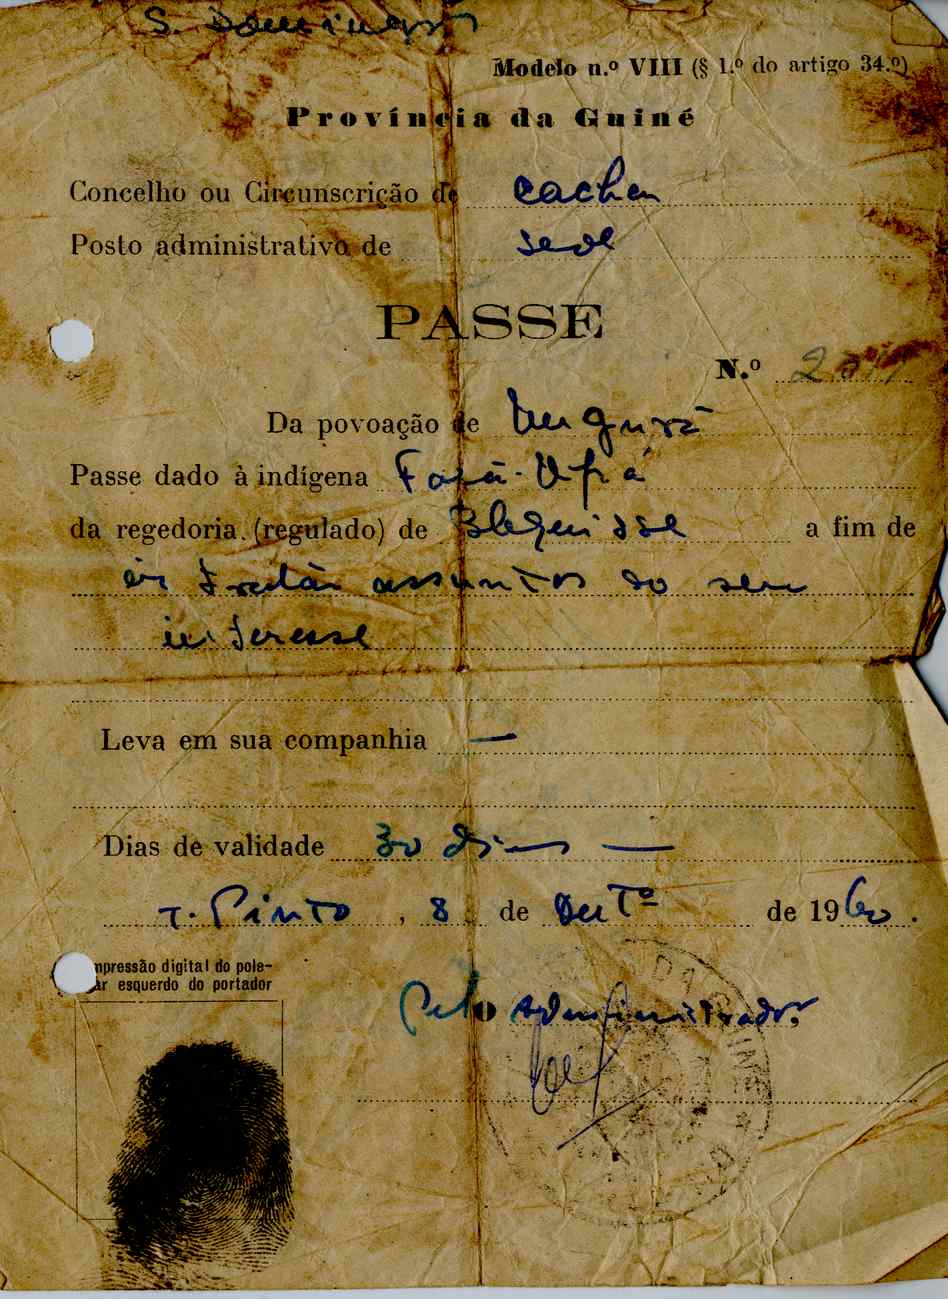 S. Domingos
Modelo n.º VIII (§ 1.º do artigo 34.º)
Província da Guiné
Concelho ou Circunscrição de Cacheu
Posto administrativo de Sede
PASSE
N.º
Da povoação de
Passe dado à indígena
da regedoria (regulado) de Blequisse a fim de
ir tratar assuntos do seu
interesse
Leva em sua companhia —
Dias de validade 30 dias —
T. Pinto, 8 de de 1960.
mpressão digital do pole-
ar esquerdo do portador
Pelo Administrador,
DA GUINÉ